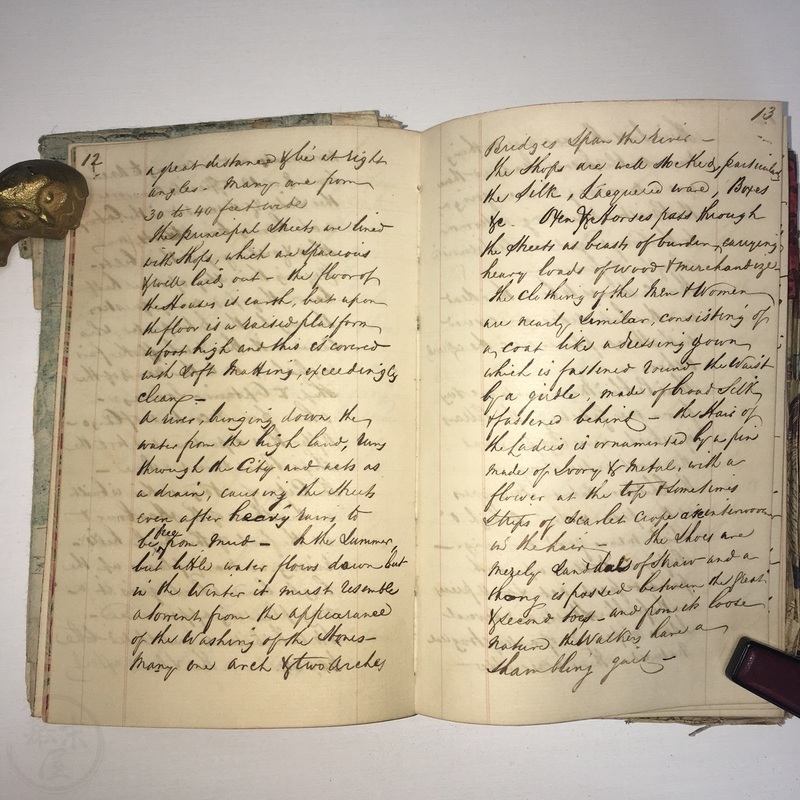 12
a great distance & lie at right
angles. Many are from
30 to 40 feet wide
The principal Streets are lined
with Shops, which are spacious
& well laid out — the floor of
the Houses is earth, but upon
the floor is a raised platform
a foot high and this is covered
with soft Matting, exceedingly
clean —
A river, bringing down the
water from the high land, runs
through the City and acts as
a drain, causing the Streets
even after heavy rains to
be free from mud — In the Summer
but little water flows down but
in the Winter it must resemble
a torrent from the appearance
of the Washing of the Stones —
Many one arch & two Arches
13
Bridges Span the river —
The Shops are well stocked, particularly
the Silk, Lacquered ware, Boxes
&c. Oxen & Horses pass through
the Streets as beasts of burden, carrying
heavy loads of wood & merchandize.
The clothing of the Men & Women
are nearly similar, consisting of
a coat like a dressing gown
which is fastened round the Waist
by a girdle, made of broad Silk
& fastened behind — the Hair of
the Ladies is ornamented by a pin
made of Ivory & Metal, with a
flower at the top & sometimes
Strips of Scarlet Crape are interwoven
in the hair — The Shoes are
merely Sandals of Straw and a
thong is passed between the Great
& second toes — and from its loose
nature the Walkers have a
shambling gait —